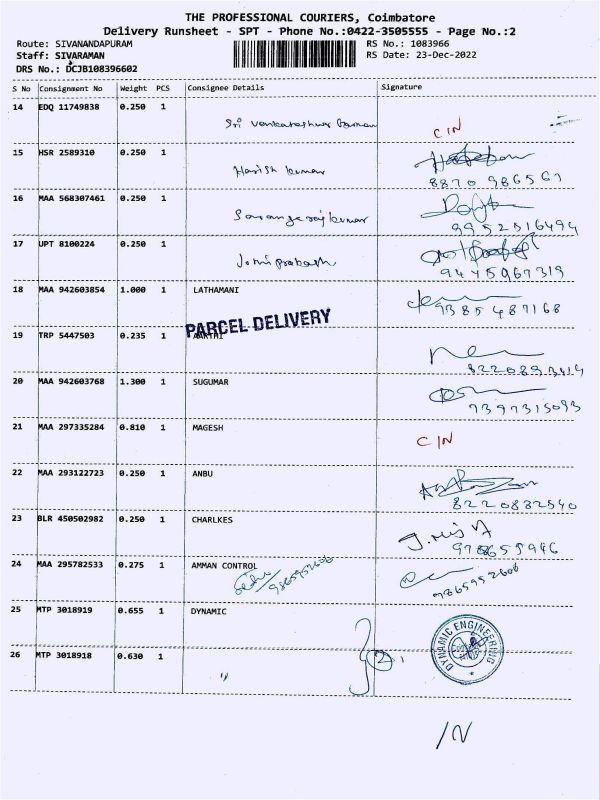 THE PROFESSIONAL COURIERS, Coimbatore
Delivery Runsheet - SPT - Phone No.:0422-3505555 - Page No.:2
Route: SIVANANDAPURAM RS No.: 1083966
Staff: SIVARAMAN RS Date: 23-Dec-2022
DRS No.: DCJB108396602
S No Consignment No Weight PCS Consignee Details Signature
14 EDQ 11749838 0.250 1 Sri Venkateshwar CIN
15 HSR 2589310 0.250 1 Harish kumar
8870 986561
16 MAA 568307461 0.250 1
9952516494
17 UPT 8100224 0.250 1 Jothiprakash
9445967319
18 MAA 942603854 1.000 1 LATHAMANI
9385487168
PARCEL DELIVERY
19 TRP 5447503 0.235 1 AARTHI
8220893414
20 MAA 942603768 1.300 1 SUGUMAR
7397315093
21 MAA 297335284 0.810 1 MAGESH CIN
22 MAA 293122723 0.250 1 ANBU
8220832540
23 BLR 450502982 0.250 1 CHARLKES
24 MAA 295782533 0.275 1 AMMAN CONTROL
9865952606
9865952606
25 MTP 3018919 0.655 1 DYNAMIC
DYNAMIC ENGINEERING
26 MTP 3018918 0.630 1 " 2
IN